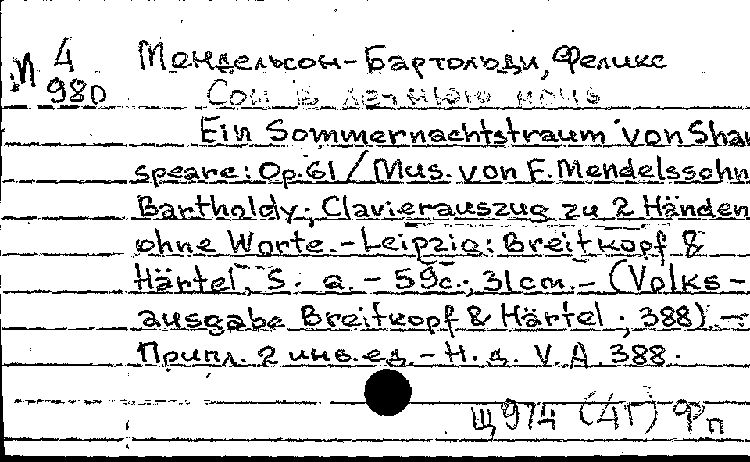 И 4
980
Мендельсон-Бартольди, Феликс
Сон в летнюю ночь
Ein Sommernachtstraum von Shak
speare: Op.61 / Mus. von F. Mendelssohn
Bartholdy; Clavierauszug zu 2 Händen
ohne Worte. - Leipzig: Breitkopf &
Härtel, S. a. - 59с.; 31cm. - (Volks-
ausgabe Breitkopf & Härtel; 388). -
Припл. 2 инв.ед. - Н.д. V.A. 388.
Щ 974 (4Г) Фп